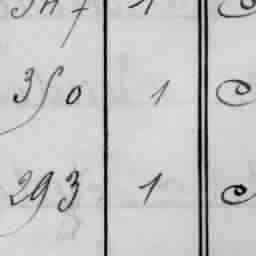 347 1
350 1
293 1